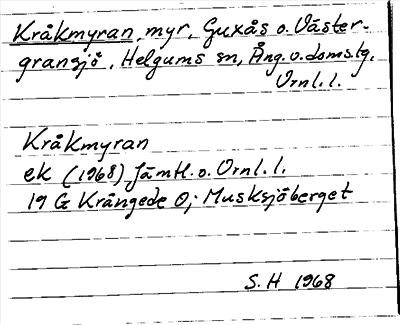 Kråkmyran, myr, Guxås o. Väster-
gransjö, Helgums sn, Ång. v. doms.lg,
Vrnl. l.
Kråkmyran
ek (1968) Jämtl. o. Vrnl. l.
19 G Krångede O; Musksjöberget
S. H 1968